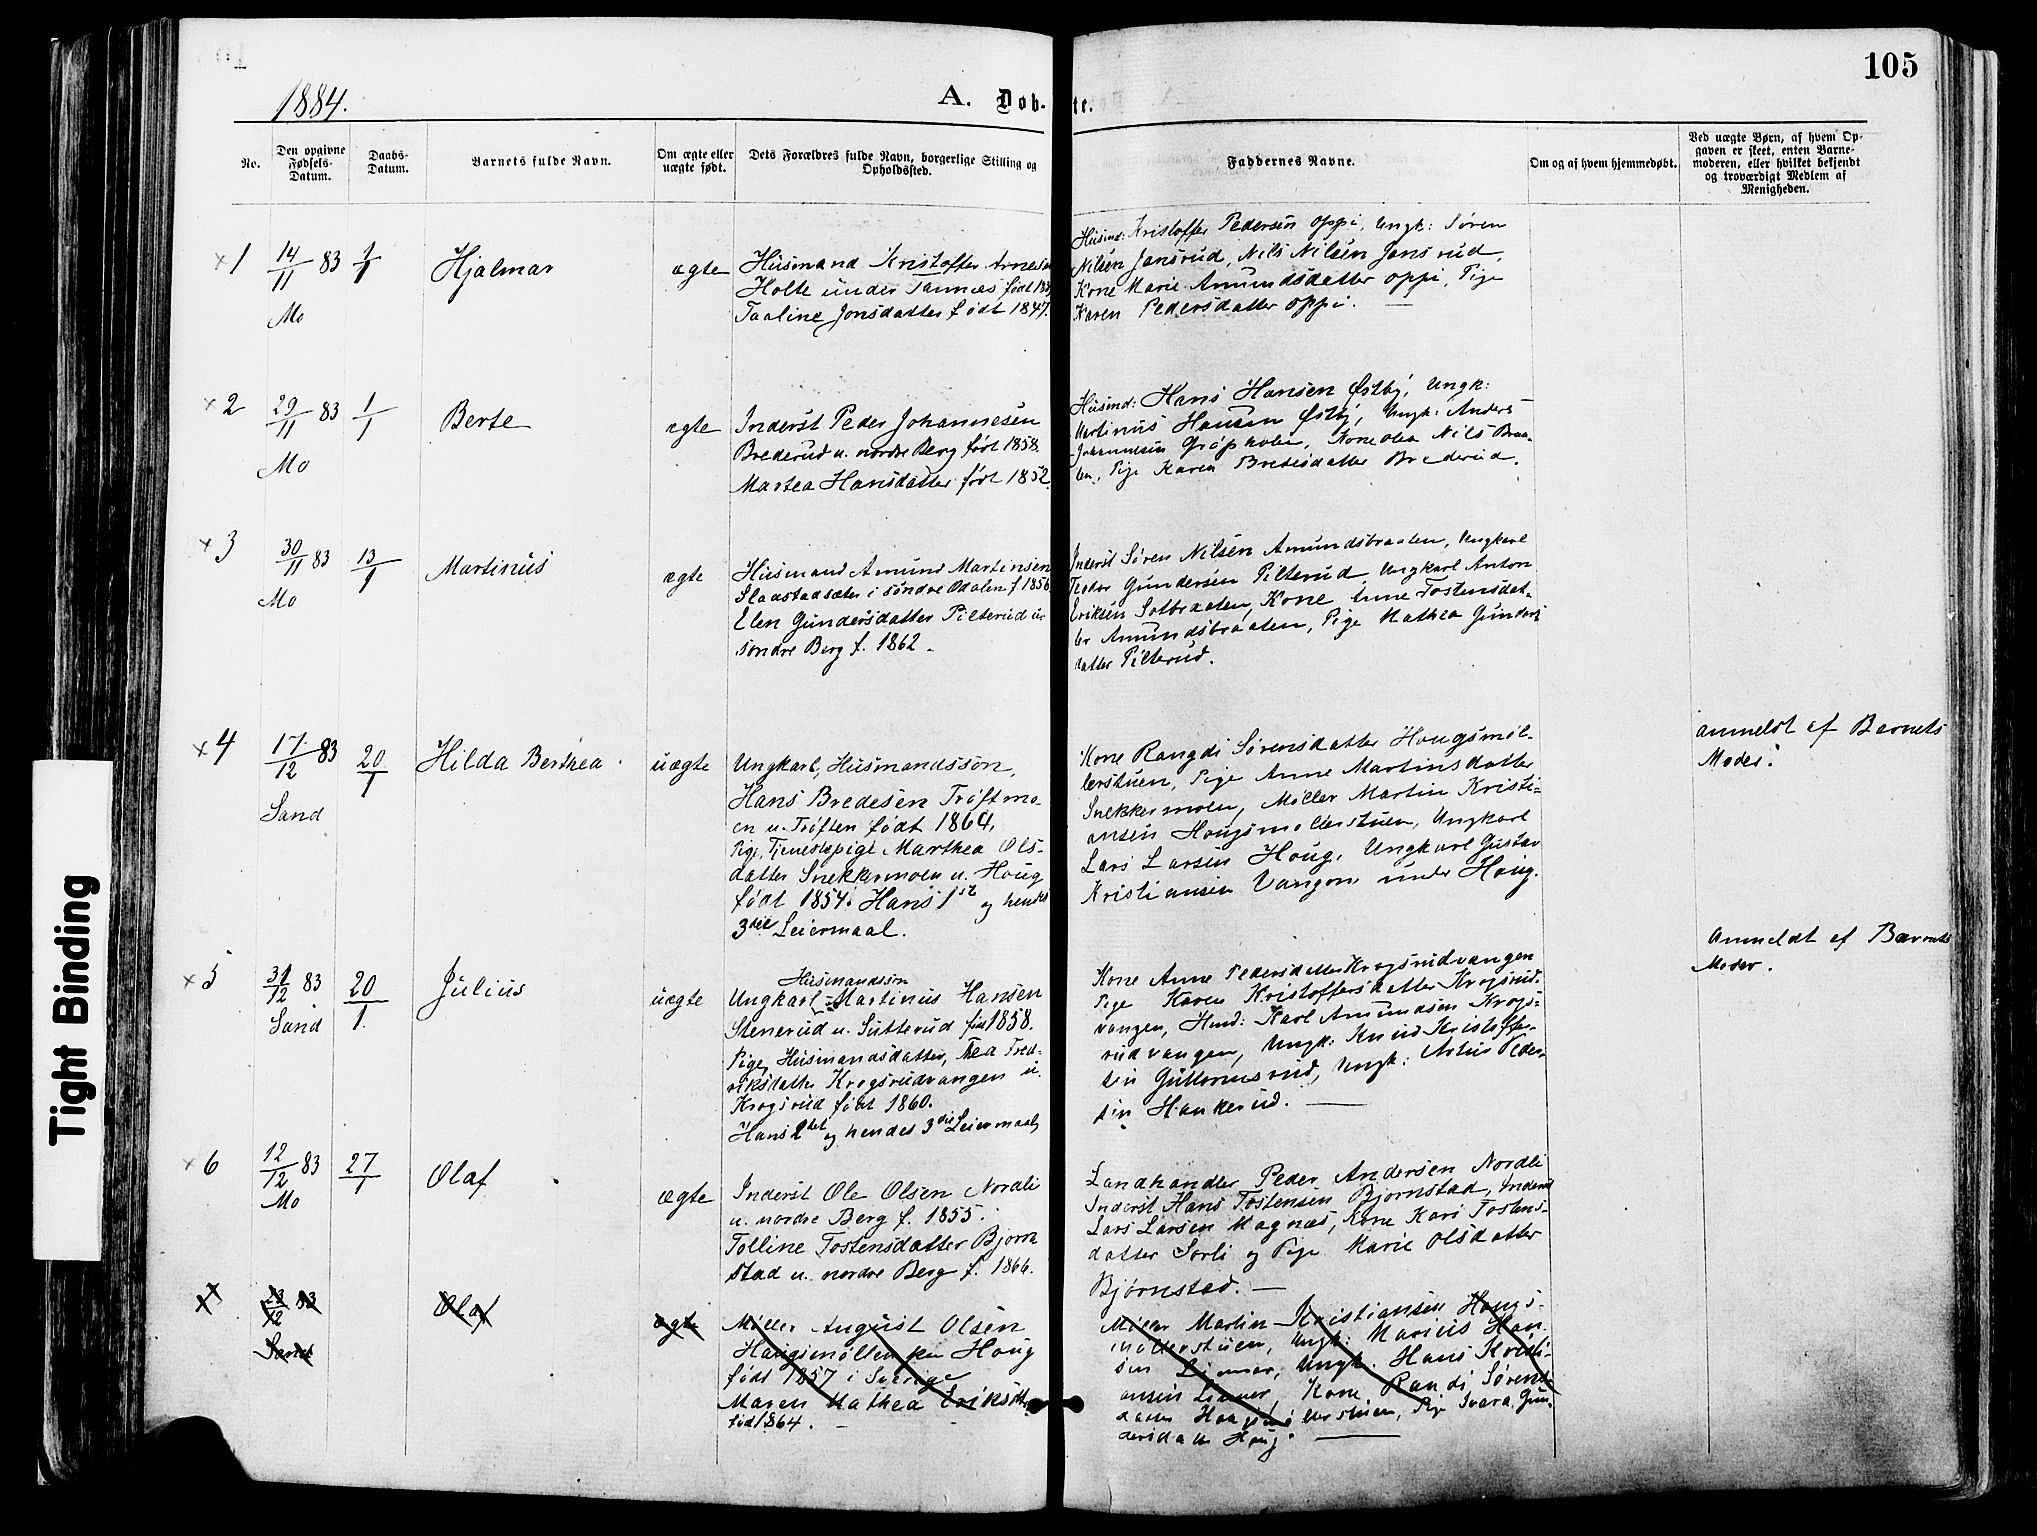 105
1884.
A. Døb-
te.
No.
Den opgivne
Fødsels-
Datum.
Daabs-
Datum.
Barnets fulde Navn.
Om ægte eller
uægte født.
Dets Forældres fulde Navn, borgerlige Stilling og
Opholdssted.
Faddernes Navne.
Om og af hvem hjemmedøbt.
Ved uægte Børn, af hvem Op-
gaven er skeet, enten Barne-
moderen, eller hvilket bekjendt
og troværdigt Medlem af
Menigheden.
1
14/11 83
1/1
Mo
Hjalmar
ægte
Husmand Kristoffer Arnesen
Holte under Tannæs født
Taaline Jonsdatter født 1847.
Husmd: Kristoffer Pedersen Oppi, Ungk: Søren
Nilsen Jansrud, Nils Nilsen Jansrud,
Kone Marie Amundsdatter Oppi, Pige
Karen Pedersdatter Oppi.
2
29/11 83
1/1
Mo
Berte
ægte
Inderst Peder Johannesen
Brederud u. nordre Berg født 1858.
Martea Hansdatter født 1852.
Husmd: Hans Hansen Østby, Ungk:
Martinus Hansen Østby, Ungk: Anders
Johannesen, Kone Olea Nils Braa-
ten, Pige Karen Bredesdatter Brederud.
3
30/11 83
13/1
Mo
Martinus
ægte
Husmand Amund Martinsen
Slaastadsæter i søndre Odalen f. 1856
Elen Gundersdatter Pilterud u
søndre Berg f. 1862.
Inderst Søren Nilsen Amundsbraaten, Ungkarl
Teodor Gundersen Pilterud, Ungkarl Anton
Eriksen Solbraaten, Kone Anne Tostensdat-
ter Amundsbraaten, Pige Mathea Gunders
datter Pilterud.
4
17/12 83
20/1
Sand
Hilda Berthea
uægte
Ungkarl, Husmandssøn,
Hans Bredesen Trøftmo-
en u. Trøften født 1864,
Pige, Tjenestepige Marthea Ols-
datter Snekkermoen u. Houg
født 1854. Hans 1ste og hendes
3die Leiermaal.
Kone Rangdi Sørensdatter Hougsmøl-
lerstuen, Pige Anne Martinsdatter
Snekkermoen, Møller Martin Kristi-
ansen Hougsmøllerstuen, Ungkarl
Lars Larsen Houg, Ungkarl Gustav
Kristiansen Vangen under Houg.
anmeldt af Barnets
Moder.
5
31/12 83
20/1.
Sand
Julius
uægte
Husmandssøn
Ungkarl Martinus Hansen
Stenerud u. Sutterud født 1858.
Pige, Husmandsdatter, Thea Fred-
riksdatter Krogsrudvangen u.
Krogsrud født 1860.
Hans 2det og hendes 3die Leiermaal
Kone Anne Pedersdatter Krogsrudvangen
Pige Karen Kristoffersdatter Krogsrud-
vangen, Husmd: Karl Amundsen Krogs-
rudvangen, Ungk: Knud Kristoffer-
sen Guttormsrud, Ungk: Peder-
sen Hankerud.
Anmeldt af Barnets
Moder.
6
12/12 83
27/1
Mo
Olaf
ægte
Inderst Ole Olsen Nordli
u. nordre Berg f. 1855.
Tolline Tostensdatter Bjørn
stad u. nordre Berg f. 1866.
Landhandler Peder Andersen Nordli
Inderst Hans Tostensen Bjørnstad, Inderst
Lars Larsen Magnæs, Kone Kari Tostens-
datter Sørli og Pige Marie Olsdatter
Bjørnstad.
7
23/12 83
Sand
Olaf
ægte
Møller August Olsen
Hougsmøllen u Houg
født 1857 i Sverige
Maren Mathea Eriksdtr.
født 1864.
Møller Martin Kristiansen Hougs-
møllerstuen, Ungk: Marius Han
sen Limer, Ungk. Hans Kristi-
ansen Limer, Kone Randi Sørens
datter Hougsmøllerstuen, Pige Svara Gun-
dersdatter Houg.
Tight Binding